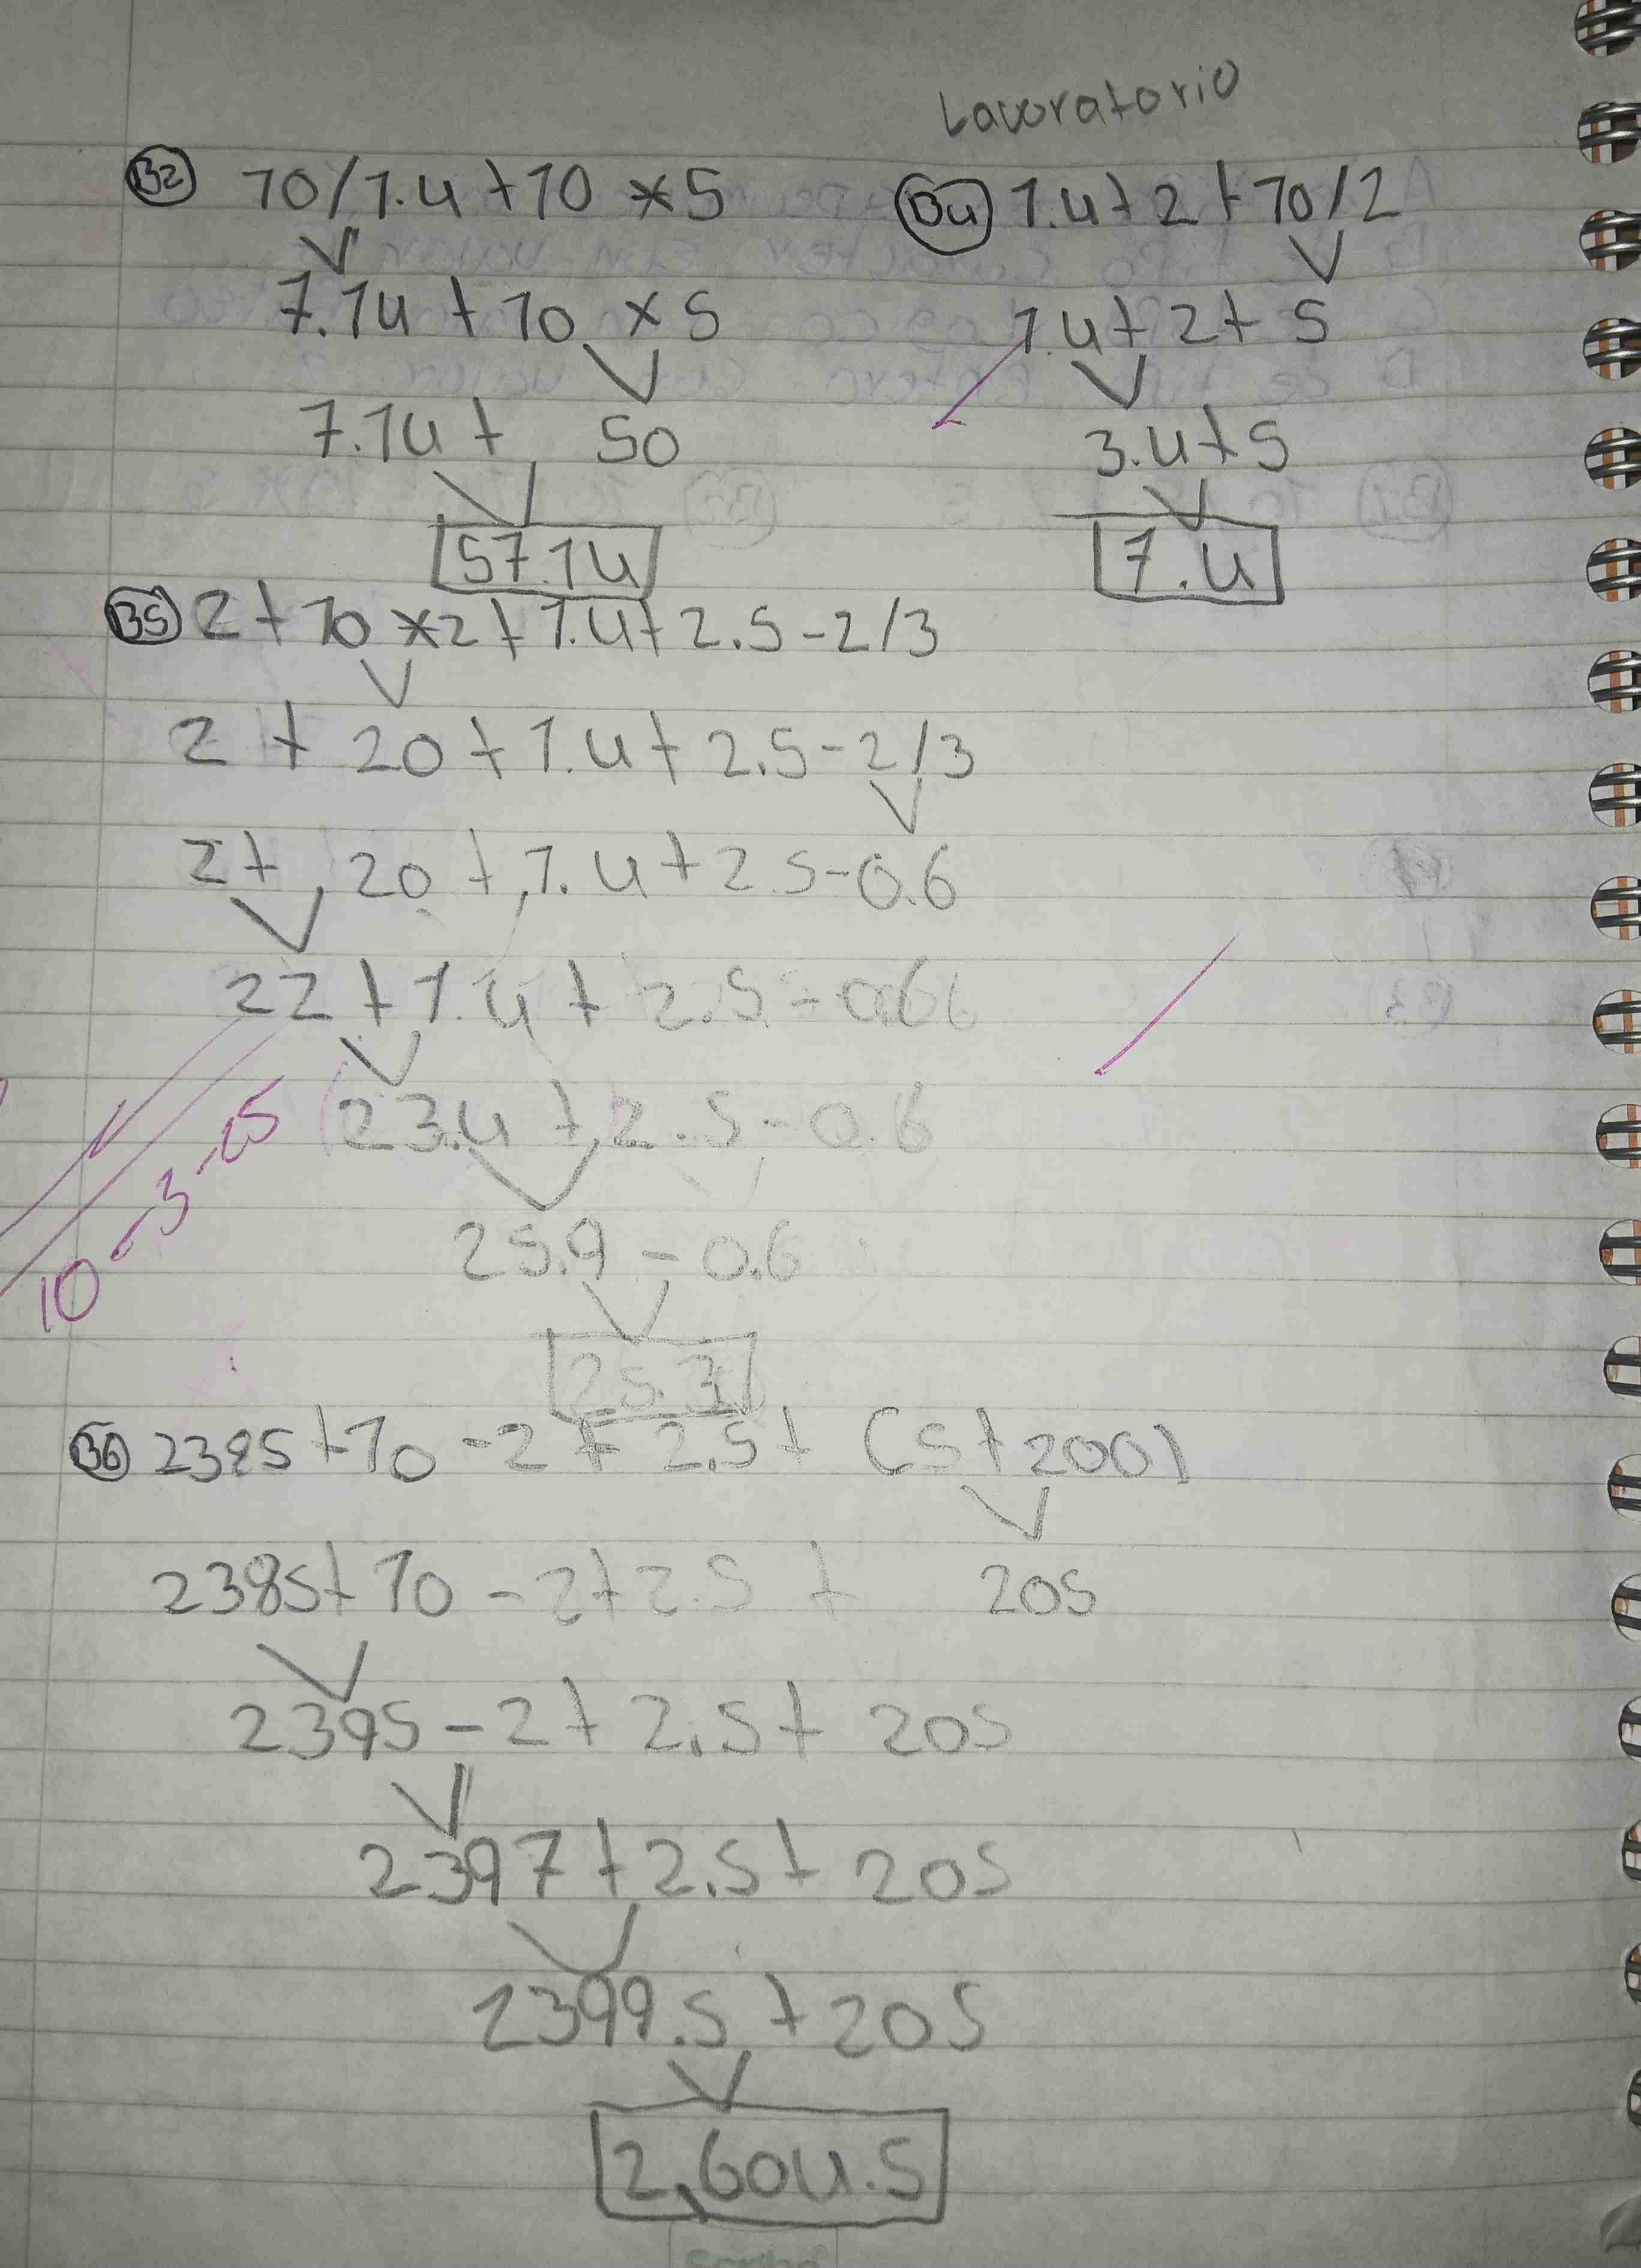 Lavoratorio
B2 10/1.4 + 10 * 5
7.14 + 10 × 5
7.14 + 50
57.14
B4 1.4 + 2 + 10/2
1.4 + 2 + 5
3.4 + 5
7.4
B5 2 + 10 * 2 + 1.4 + 2.5 - 2/3
2 + 20 + 1.4 + 2.5 - 2/3
2 + 20 + 1.4 + 2.5 - 0.6
22 + 1.4 + 2.5 - 0.66
23.4 + 2.5 - 0.6
25.9 - 0.6
25.3
10-3-25
B6 2385 + 10 - 2 + 2.5 + (5 + 200)
2385 + 10 - 2 + 2.5 + 205
2395 - 2 + 2.5 + 205
2397 + 2.5 + 205
2399.5 + 205
2,604.5
Scribe